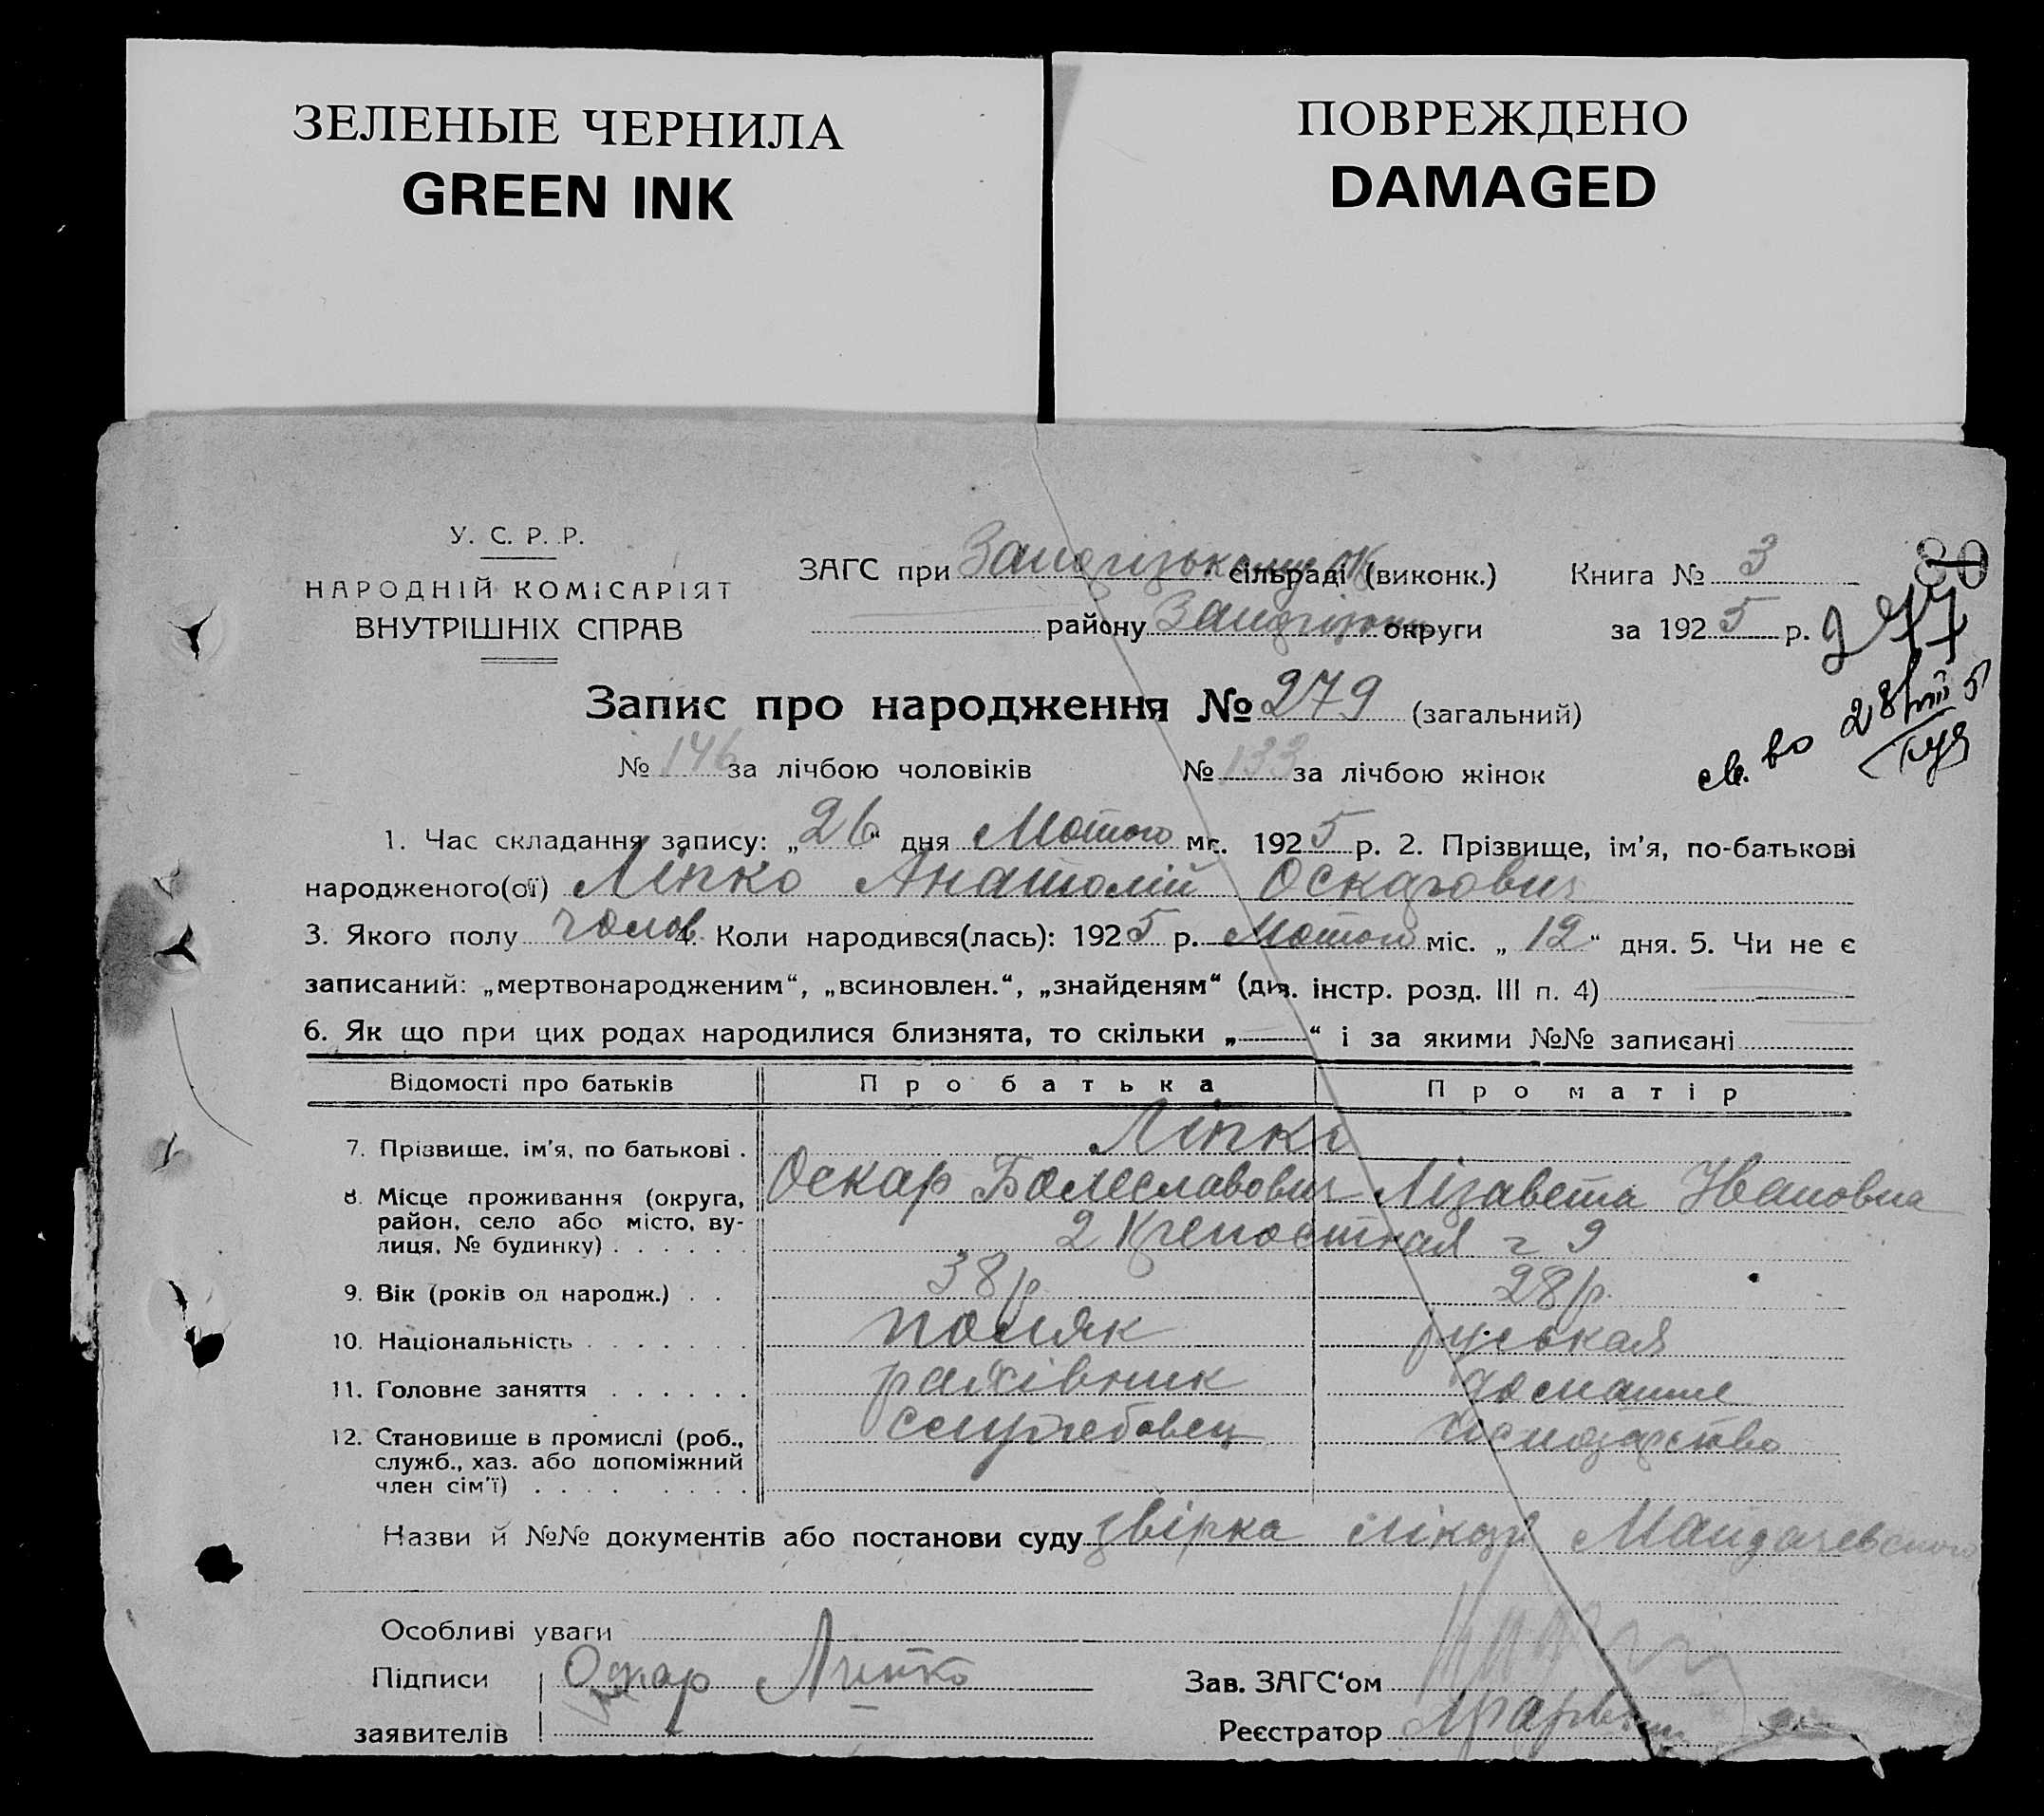 ЗЕЛЕНЫЕ ЧЕРНИЛА
GREEN INK
ПОВРЕЖДЕНО
DAMAGED
У. С. Р. Р.
НАРОДНІЙ КОМІСАРІЯТ
ВНУТРІШНІХ СПРАВ
ЗАГС при сільраді (виконк.) Книга № 3
району округи за 1925 р.
80
277
Запис про народження № 279 (загальний)
№ 146 за лічбою чоловіків № 133 за лічбою жінок
1. Час складання запису: „26“ дня Лютого мс. 1925 р. 2. Прізвище, ім'я, по-батькові
народженого(ої) Ліпко Анатолій Оскарович
3. Якого полу чолов 4. Коли народився(лась): 1925 р. Лютого міс. „12“ дня. 5. Чи не є
записаний: „мертвонародженим“, „всиновлен.“, „знайденям“ (див. інстр. розд. III п. 4)
6. Як що при цих родах народилися близнята, то скільки „—“ і за якими №№ записані
Відомості про батьків Про батька Про матір
7. Прізвище, ім'я, по батькові . Ліпко
Оскар Болеславович Лізавета Ивановна
8. Місце проживання (округа,
район, село або місто, ву-
лиця, № будинку) . . . . . . 2 Крепостная 9
9. Вік (років од народж.) . . 38 р. 28 р.
10. Національність . . . . . . . поляк руськая
11. Головне заняття . . . . . . рахівник домашнє
12. Становище в промислі (роб.,
служб., хаз. або допоміжний
член сім'ї) . . . . . . . . служебовец господарство
Назви й №№ документів або постанови суду звірка лікар
Особливі уваги
Підписи Оскар Липко Зав. ЗАГС'ом
заявителів Реєстратор